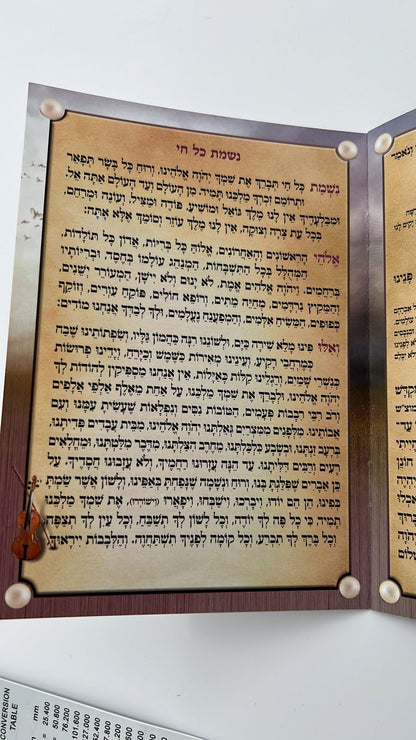 נשמת כל חי
נִשְׁמַת כָּל חַי תְּבָרֵךְ אֶת שִׁמְךָ יְהוָה אֱלֹהֵינוּ, וְרוּחַ כָּל בָּשָׂר תְּפָאֵר
וּתְרוֹמֵם זִכְרְךָ מַלְכֵּנוּ תָּמִיד, מִן הָעוֹלָם וְעַד הָעוֹלָם אַתָּה אֵל,
וּמִבַּלְעָדֶיךָ אֵין לָנוּ מֶלֶךְ גּוֹאֵל וּמוֹשִׁיעַ, פּוֹדֶה וּמַצִּיל, וְעוֹנֶה וּמְרַחֵם,
בְּכָל עֵת צָרָה וְצוּקָה, אֵין לָנוּ מֶלֶךְ עוֹזֵר וְסוֹמֵךְ אֶלָּא אָתָּה:
אֱלֹהֵי הָרִאשׁוֹנִים וְהָאַחֲרוֹנִים, אֱלוֹהַּ כָּל בְּרִיּוֹת, אֲדוֹן כָּל תּוֹלָדוֹת,
הַמְהֻלָּל בְּכָל הַתִּשְׁבָּחוֹת, הַמְנַהֵג עוֹלָמוֹ בְּחֶסֶד, וּבְרִיּוֹתָיו
בְּרַחֲמִים. וַיהוָה אֱלֹהִים אֱמֶת, לֹא יָנוּם וְלֹא יִישָׁן, הַמְעוֹרֵר יְשֵׁנִים,
וְהַמֵּקִיץ נִרְדָּמִים, מְחַיֵּה מֵתִים, וְרוֹפֵא חוֹלִים, פּוֹקֵחַ עִוְרִים, וְזוֹקֵף
כְּפוּפִים, הַמֵּשִׂיחַ אִלְּמִים, וְהַמְפַעֲנֵחַ נֶעֱלָמִים, וּלְךָ לְבַדְּךָ אֲנַחְנוּ מוֹדִים:
וְאִלּוּ פִינוּ מָלֵא שִׁירָה כַּיָּם, וּלְשׁוֹנֵנוּ רִנָּה כַּהֲמוֹן גַּלָּיו, וְשִׂפְתוֹתֵינוּ שֶׁבַח
כְּמֶרְחֲבֵי רָקִיעַ, וְעֵינֵינוּ מְאִירוֹת כַּשֶּׁמֶשׁ וְכַיָּרֵחַ, וְיָדֵינוּ פְרוּשׂוֹת
כְּנִשְׁרֵי שָׁמַיִם, וְרַגְלֵינוּ קַלּוֹת כָּאַיָּלוֹת, אֵין אֲנַחְנוּ מַסְפִּיקִין לְהוֹדוֹת לְךָ
יְהוָה אֱלֹהֵינוּ, וּלְבָרֵךְ אֶת שִׁמְךָ מַלְכֵּנוּ, עַל אַחַת מֵאֶלֶף אַלְפֵי אֲלָפִים
וְרֹב רִבֵּי רְבָבוֹת פְּעָמִים, הַטּוֹבוֹת נִסִּים וְנִפְלָאוֹת שֶׁעָשִׂיתָ עִמָּנוּ וְעִם
אֲבוֹתֵינוּ. מִלְּפָנִים מִמִּצְרַיִם גְּאַלְתָּנוּ יְהוָה אֱלֹהֵינוּ, מִבֵּית עֲבָדִים פְּדִיתָנוּ,
בְּרָעָב זַנְתָּנוּ, וּבְשָׂבָע כִּלְכַּלְתָּנוּ, מֵחֶרֶב הִצַּלְתָּנוּ, מִדֶּבֶר מִלַּטְתָּנוּ, וּמֵחֳלָאִים
רָעִים וְרַבִּים דִּלִּיתָנוּ. עַד הֵנָּה עֲזָרוּנוּ רַחֲמֶיךָ, וְלֹא עֲזָבוּנוּ חֲסָדֶיךָ. עַל
כֵּן אֵבָרִים שֶׁפִּלַּגְתָּ בָּנוּ, וְרוּחַ וּנְשָׁמָה שֶׁנָּפַחְתָּ בְּאַפֵּינוּ, וְלָשׁוֹן אֲשֶׁר שַׂמְתָּ
בְּפִינוּ, הֵן הֵם יוֹדוּ, וִיבָרְכוּ, וִישַׁבְּחוּ, וִיפָאֲרוּ (וִישׁוֹרְרוּ), אֶת שִׁמְךָ מַלְכֵּנוּ
תָמִיד, כִּי כָל פֶּה לְךָ יוֹדֶה, וְכָל לָשׁוֹן לְךָ תְשַׁבֵּחַ, וְכָל עַיִן לְךָ תְצַפֶּה,
וְכָל בֶּרֶךְ לְךָ תִכְרַע, וְכָל קוֹמָה לְפָנֶיךָ תִשְׁתַּחֲוֶה. וְהַלְּבָבוֹת יִירָאוּךָ
CONVERSION
TABLE
mm
= 25.400
= 50.800
76.200
101.600